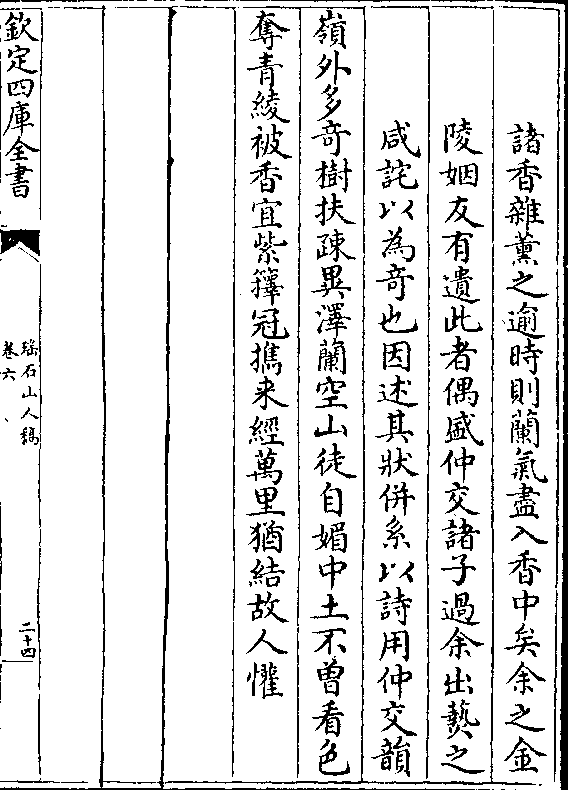 諸香雜薫之逾時則蘭氣盡入香中矣余之金
陵姻友有遺此者偶盛仲交諸子過余出爇之
咸詫以為奇也因述其狀併系以詩用仲交韻
嶺外多竒樹扶疎異澤蘭空山徒自媚中土不曽看色
奪青綾被香宜紫籜冠擕来經萬里猶結故人懽
欽定四庫全書
瑤石山人稿
卷六
二十四